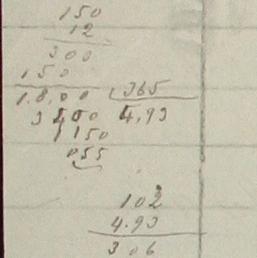 150
12
300
150
1.8.00 365
3400 4,93
1150
055
102
4.93
306